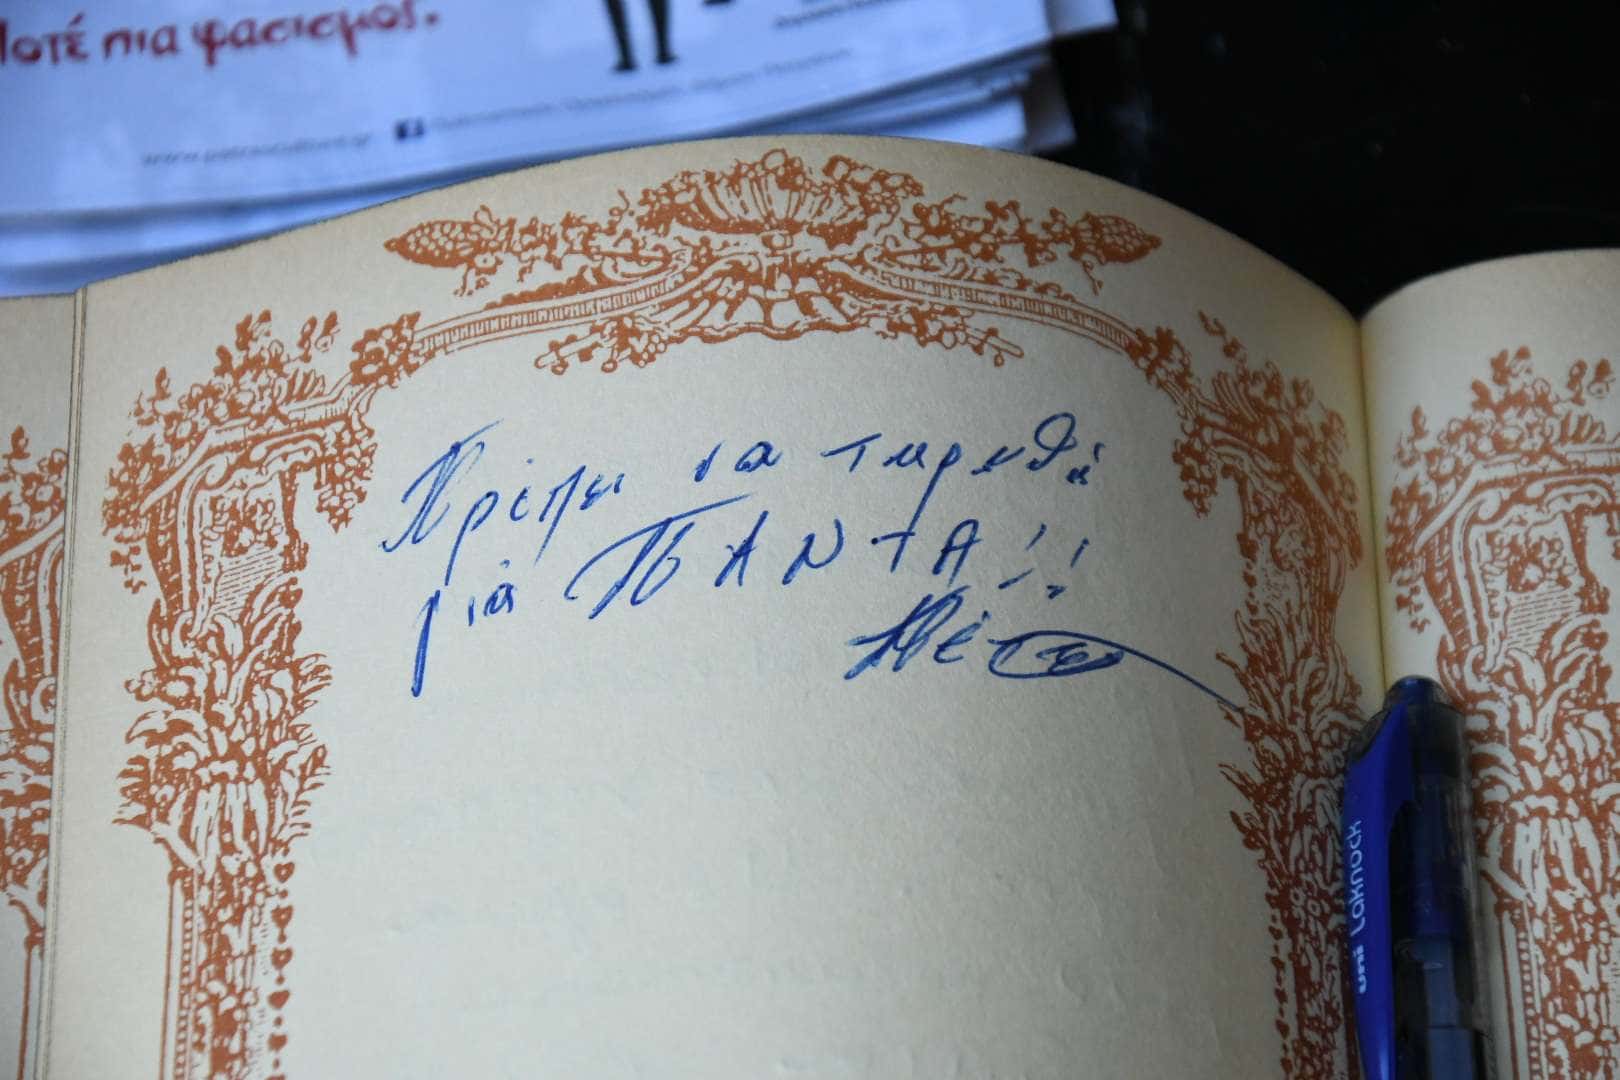 Ποτέ πια φασισμός.
www.patrasculture.gr
Πρέπει να τιμηθεί
για ΠΑΝΤΑ!!
uni Laknock